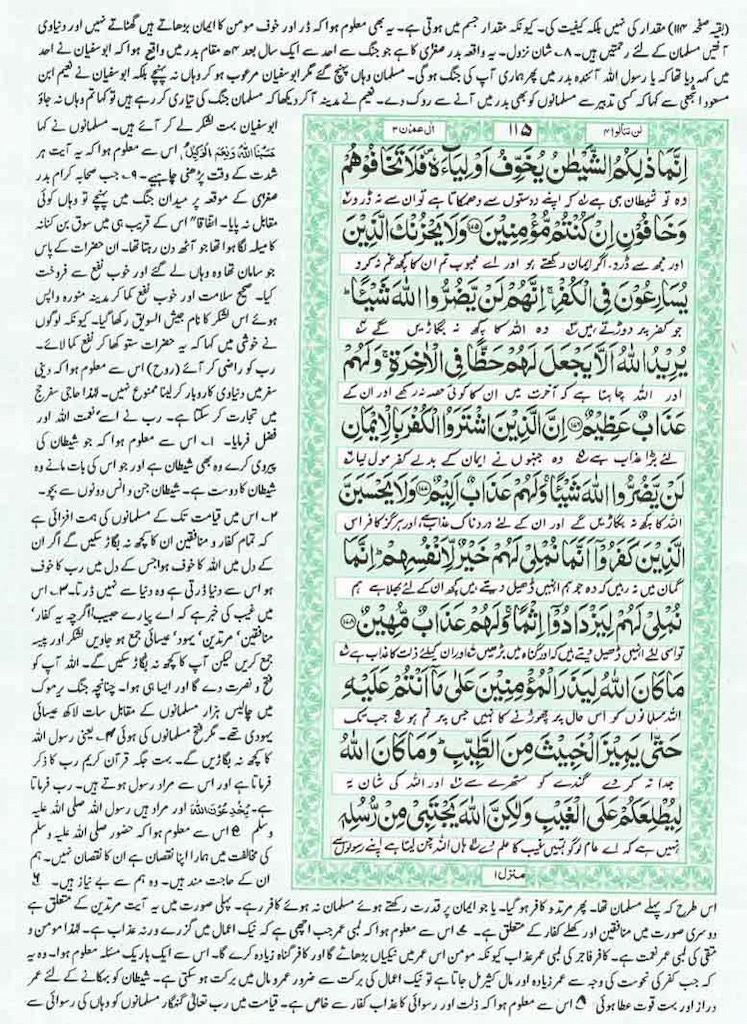 (بقیہ صفحہ ۱۱۴) مقدار کی نہیں بلکہ کیفیت کی۔ کیونکہ مقدار جسم میں ہوتی ہے۔ یہ بھی معلوم ہوا کہ ڈر اور خوف مومن کا ایمان بڑھاتے ہیں گھٹاتے نہیں اور دنیاوی
آفتیں مسلمان کے لئے رحمتیں ہیں۔ ۸۔ شان نزول۔ یہ واقعہ بدر صغریٰ کا ہے جو جنگ سے احد سے ایک سال بعد ۴ھ مقام بدر میں واقع ہوا کہ ابوسفیان نے احد
میں کہہ دیا تھا کہ یا رسول اللہ آئندہ بدر میں پھر ہماری آپ کی جنگ ہوگی۔ مسلمان وہاں پہنچ گئے مگر ابوسفیان مرعوب ہو کر وہاں نہ پہنچے بلکہ ابوسفیان نے نعیم ابن
مسعود اشجعی سے کہا کہ کسی تدبیر سے مسلمانوں کو بھی بدر میں آنے سے روک دے۔ نعیم نے مدینہ آ کر دیکھا کہ مسلمان جنگ کی تیاری کر رہے ہیں تو کہا تم وہاں نہ جاؤ
لن تنالوا ۴
۱۱۵
اٰل عمرٰن ۳
اِنَّمَا ذٰلِكُمُ الشَّيْطٰنُ يُخَوِّفُ اَوْلِيَآءَهٗ فَلَا تَخَافُوْهُمْ
وہ تو شیطان ہی ہے کہ اپنے دوستوں سے دھمکاتا ہے تو ان سے نہ ڈرو
وَخَافُوْنِ اِنْ كُنْتُمْ مُّؤْمِنِيْنَ ۝۱۷۵ وَلَا يَحْزُنْكَ الَّذِيْنَ
اور مجھ سے ڈرو۔ اگر ایمان رکھتے ہو اور اے محبوب تم ان کا کچھ غم نہ کرو
يُسَارِعُوْنَ فِي الْكُفْرِ اِنَّهُمْ لَنْ يَّضُرُّوا اللّٰهَ شَيْئًا
جو کفر پر دوڑتے ہیں وہ اللہ کا کچھ نہ بگاڑیں گے
يُرِيْدُ اللّٰهُ اَلَّا يَجْعَلَ لَهُمْ حَظًّا فِي الْاٰخِرَةِ وَلَهُمْ
اور اللہ چاہتا ہے کہ آخرت میں ان کا کوئی حصہ نہ رکھے اور ان کے
عَذَابٌ عَظِيْمٌ ۝۱۷۶ اِنَّ الَّذِيْنَ اشْتَرَوُا الْكُفْرَ بِالْاِيْمَانِ
لئے بڑا عذاب ہے وہ جنہوں نے ایمان کے بدلے کفر مول لیا
لَنْ يَّضُرُّوا اللّٰهَ شَيْئًا وَلَهُمْ عَذَابٌ اَلِيْمٌ ۝۱۷۷ وَلَا يَحْسَبَنَّ
اللہ کا کچھ نہ بگاڑیں گے اور ان کے لئے دردناک عذاب ہے، اور ہرگز کافر اس
الَّذِيْنَ كَفَرُوْٓا اَنَّمَا نُمْلِيْ لَهُمْ خَيْرٌ لِّاَنْفُسِهِمْ اِنَّمَا
گمان میں نہ رہیں کہ وہ جو ہم انہیں ڈھیل دیتے ہیں کچھ ان کے لئے بھلا ہے ہم
نُمْلِيْ لَهُمْ لِيَزْدَادُوْٓا اِثْمًا وَلَهُمْ عَذَابٌ مُّهِيْنٌ ۝۱۷۸
تو اسی لئے انہیں ڈھیل دیتے ہیں کہ اور گناہ میں بڑھیں اور ان کیلئے ذلت کا عذاب ہے
مَا كَانَ اللّٰهُ لِيَذَرَ الْمُؤْمِنِيْنَ عَلٰى مَآ اَنْتُمْ عَلَيْهِ
اللہ مسلمانوں کو اس حال پر چھوڑنے کا نہیں جس پر تم ہو جب تک
حَتّٰى يَمِيْزَ الْخَبِيْثَ مِنَ الطَّيِّبِ وَمَا كَانَ اللّٰهُ
جدا نہ کر دے گندے کو ستھرے سے اور اللہ کی شان یہ
لِيُطْلِعَكُمْ عَلَى الْغَيْبِ وَلٰكِنَّ اللّٰهَ يَجْتَبِيْ مِنْ رُّسُلِهٖ
نہیں ہے کہ اے عام لوگو تمہیں غیب کا علم دے دے ہاں اللہ چن لیتا ہے اپنے رسولوں سے
منزل ۱
ابوسفیان بہت لشکر لے کر آئے ہیں۔ مسلمانوں نے کہا
حَسْبُنَا اللّٰهُ وَنِعْمَ الْوَكِيْلُ۔ اس سے معلوم ہوا کہ یہ آیت ہر
شدت کے وقت پڑھنی چاہیے۔ ۹۔ جب صحابہ کرام بدر
صغریٰ کے موقعہ پر میدان جنگ میں پہنچے تو وہاں کوئی
مقابل نہ پایا۔ اتفاقا" اس کے قریب ہی میں سوق بنی کنانہ
کا میلہ لگا ہوا تھا جو آٹھ دن رہتا تھا۔ ان حضرات کے پاس
جو سامان تھا وہ وہاں لے گئے اور خوب نفع سے فروخت
کیا۔ صحیح سلامت اور خوب نفع کما کر مدینہ منورہ واپس
ہوئے اس لشکر کا نام جیش السویق رکھا گیا۔ کیونکہ لوگوں
نے خوشی میں کہا کہ یہ حضرات ستو کھا کر نفع کما لائے۔
رب کو راضی کر آئے (روح) اس سے معلوم ہوا کہ دینی
سفر میں دنیاوی کاروبار کر لینا ممنوع نہیں۔ لہٰذا حاجی سفر حج
میں تجارت کر سکتا ہے۔ رب نے اسے نعمت اللہ اور
فضل فرمایا۔ ۱۔ اس سے معلوم ہوا کہ جو شیطان کی
پیروی کرے وہ بھی شیطان ہے اور جو اس کی بات مانے وہ
شیطان کا دوست ہے۔ شیطان جن و انس دونوں سے بچو۔
۲۔ اس میں قیامت تک کے مسلمانوں کی ہمت افزائی ہے
کہ تمام کفار و منافقین ان کا کچھ نہ بگاڑ سکیں گے اگر ان
کے دل میں اللہ کا خوف ہوا جس کے دل میں رب کا خوف
ہو اس سے دنیا ڈرتی ہے وہ دنیا سے نہیں ڈرتا۔ ۳۔ اس
میں غیب کی خبر ہے کہ اے پیارے حبیب اگرچہ یہ کفار'
منافقین' مرتدین' یہود' عیسائی جمع ہو جاویں لشکر اور پیسہ
جمع کریں لیکن آپ کا کچھ نہ بگاڑ سکیں گے۔ اللہ آپ کو
فتح و نصرت دے گا اور ایسا ہی ہوا۔ چنانچہ جنگ یرموک
میں چالیس ہزار مسلمانوں کے مقابل سات لاکھ عیسائی
یہودی تھے۔ مگر فتح مسلمانوں کی ہوئی ۴۔ یعنی رسول اللہ
کا کچھ نہ بگاڑیں گے۔ بہت جگہ قرآن کریم رب کا ذکر
فرماتا ہے اور اس سے مراد رسول ہوتے ہیں۔ رب فرماتا
ہے۔ يُخٰدِعُوْنَ اللّٰهَ اور مراد ہیں رسول اللہ صلی اللہ علیہ
وسلم ۵ اس سے معلوم ہوا کہ حضور صلی اللہ علیہ وسلم
کی مخالفت میں ہمارا اپنا نقصان ہے ان کا نقصان نہیں۔ ہم
ان کے حاجت مند ہیں۔ وہ ہم سے بے نیاز ہیں۔ ۶
اس طرح کہ پہلے مسلمان تھا۔ پھر مرتد و کافر ہو گیا۔ یا جو ایمان پر قدرت رکھتے ہوئے مسلمان نہ ہوئے کافر رہے۔ پہلی صورت میں یہ آیت مرتدین کے متعلق ہے
دوسری صورت میں منافقین اور کھلے کفار کے متعلق ہے۔ ۷ اس سے معلوم ہوا کہ لمبی عمر جب اچھی ہے کہ نیک اعمال میں گزرے ورنہ عذاب ہے۔ لہٰذا مومن و
متقی کی لمبی عمر نعمت ہے۔ کافر فاجر کی لمبی عمر عذاب کیونکہ مومن اس عمر میں نیکیاں بڑھائے گا اور کافر گناہ زیادہ کرے گا۔ اس سے ایک باریک مسئلہ معلوم ہوا۔ وہ یہ
کہ جب کفر کی نحوست کی وجہ سے عمر زیادہ اور مال کثیر مل جاتا ہے تو نیک اعمال کی برکت سے ضرور عمر و مال میں برکت ہو سکتی ہے۔ شیطان کو بہکانے کے لئے عمر
دراز اور بہت قوت عطا ہوئی ۸ اس سے معلوم ہوا کہ ذلت اور رسوائی کا عذاب کفار سے خاص ہے۔ قیامت میں رب تعالیٰ گنہگار مسلمانوں کو وہاں کی رسوائی سے